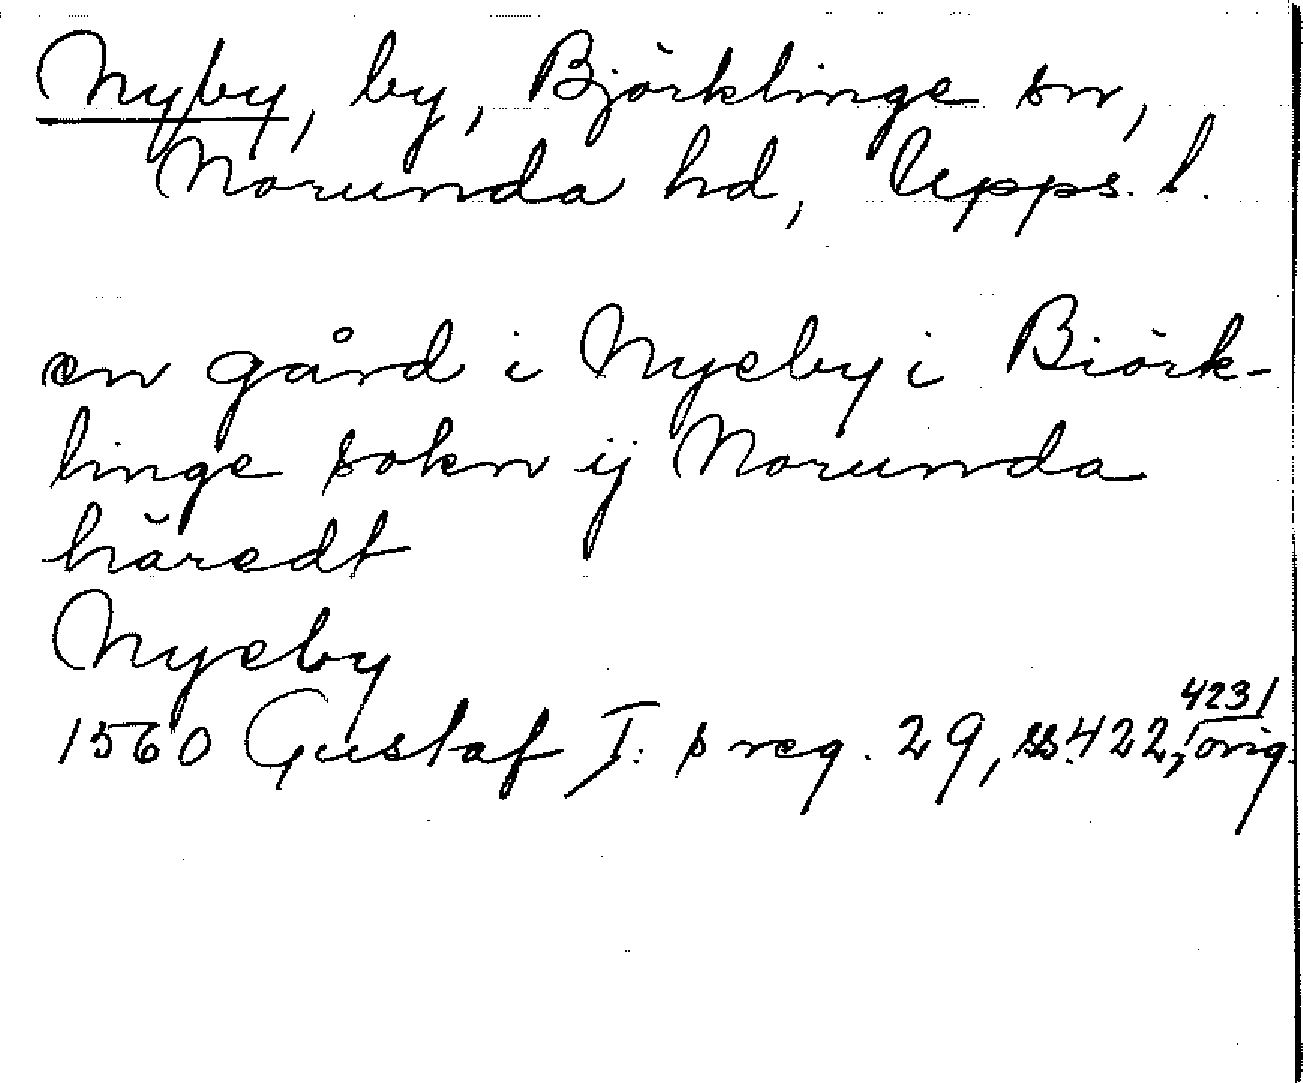 Nyby, by, Björklinge sn,
Norunda hd, Upps. l.
en gård i Nyeby i Biörk-
linge sokn ij Norunda
häredt
Nyeby
1560 Gustaf I:s reg. 29, ss. 422, 423, orig.